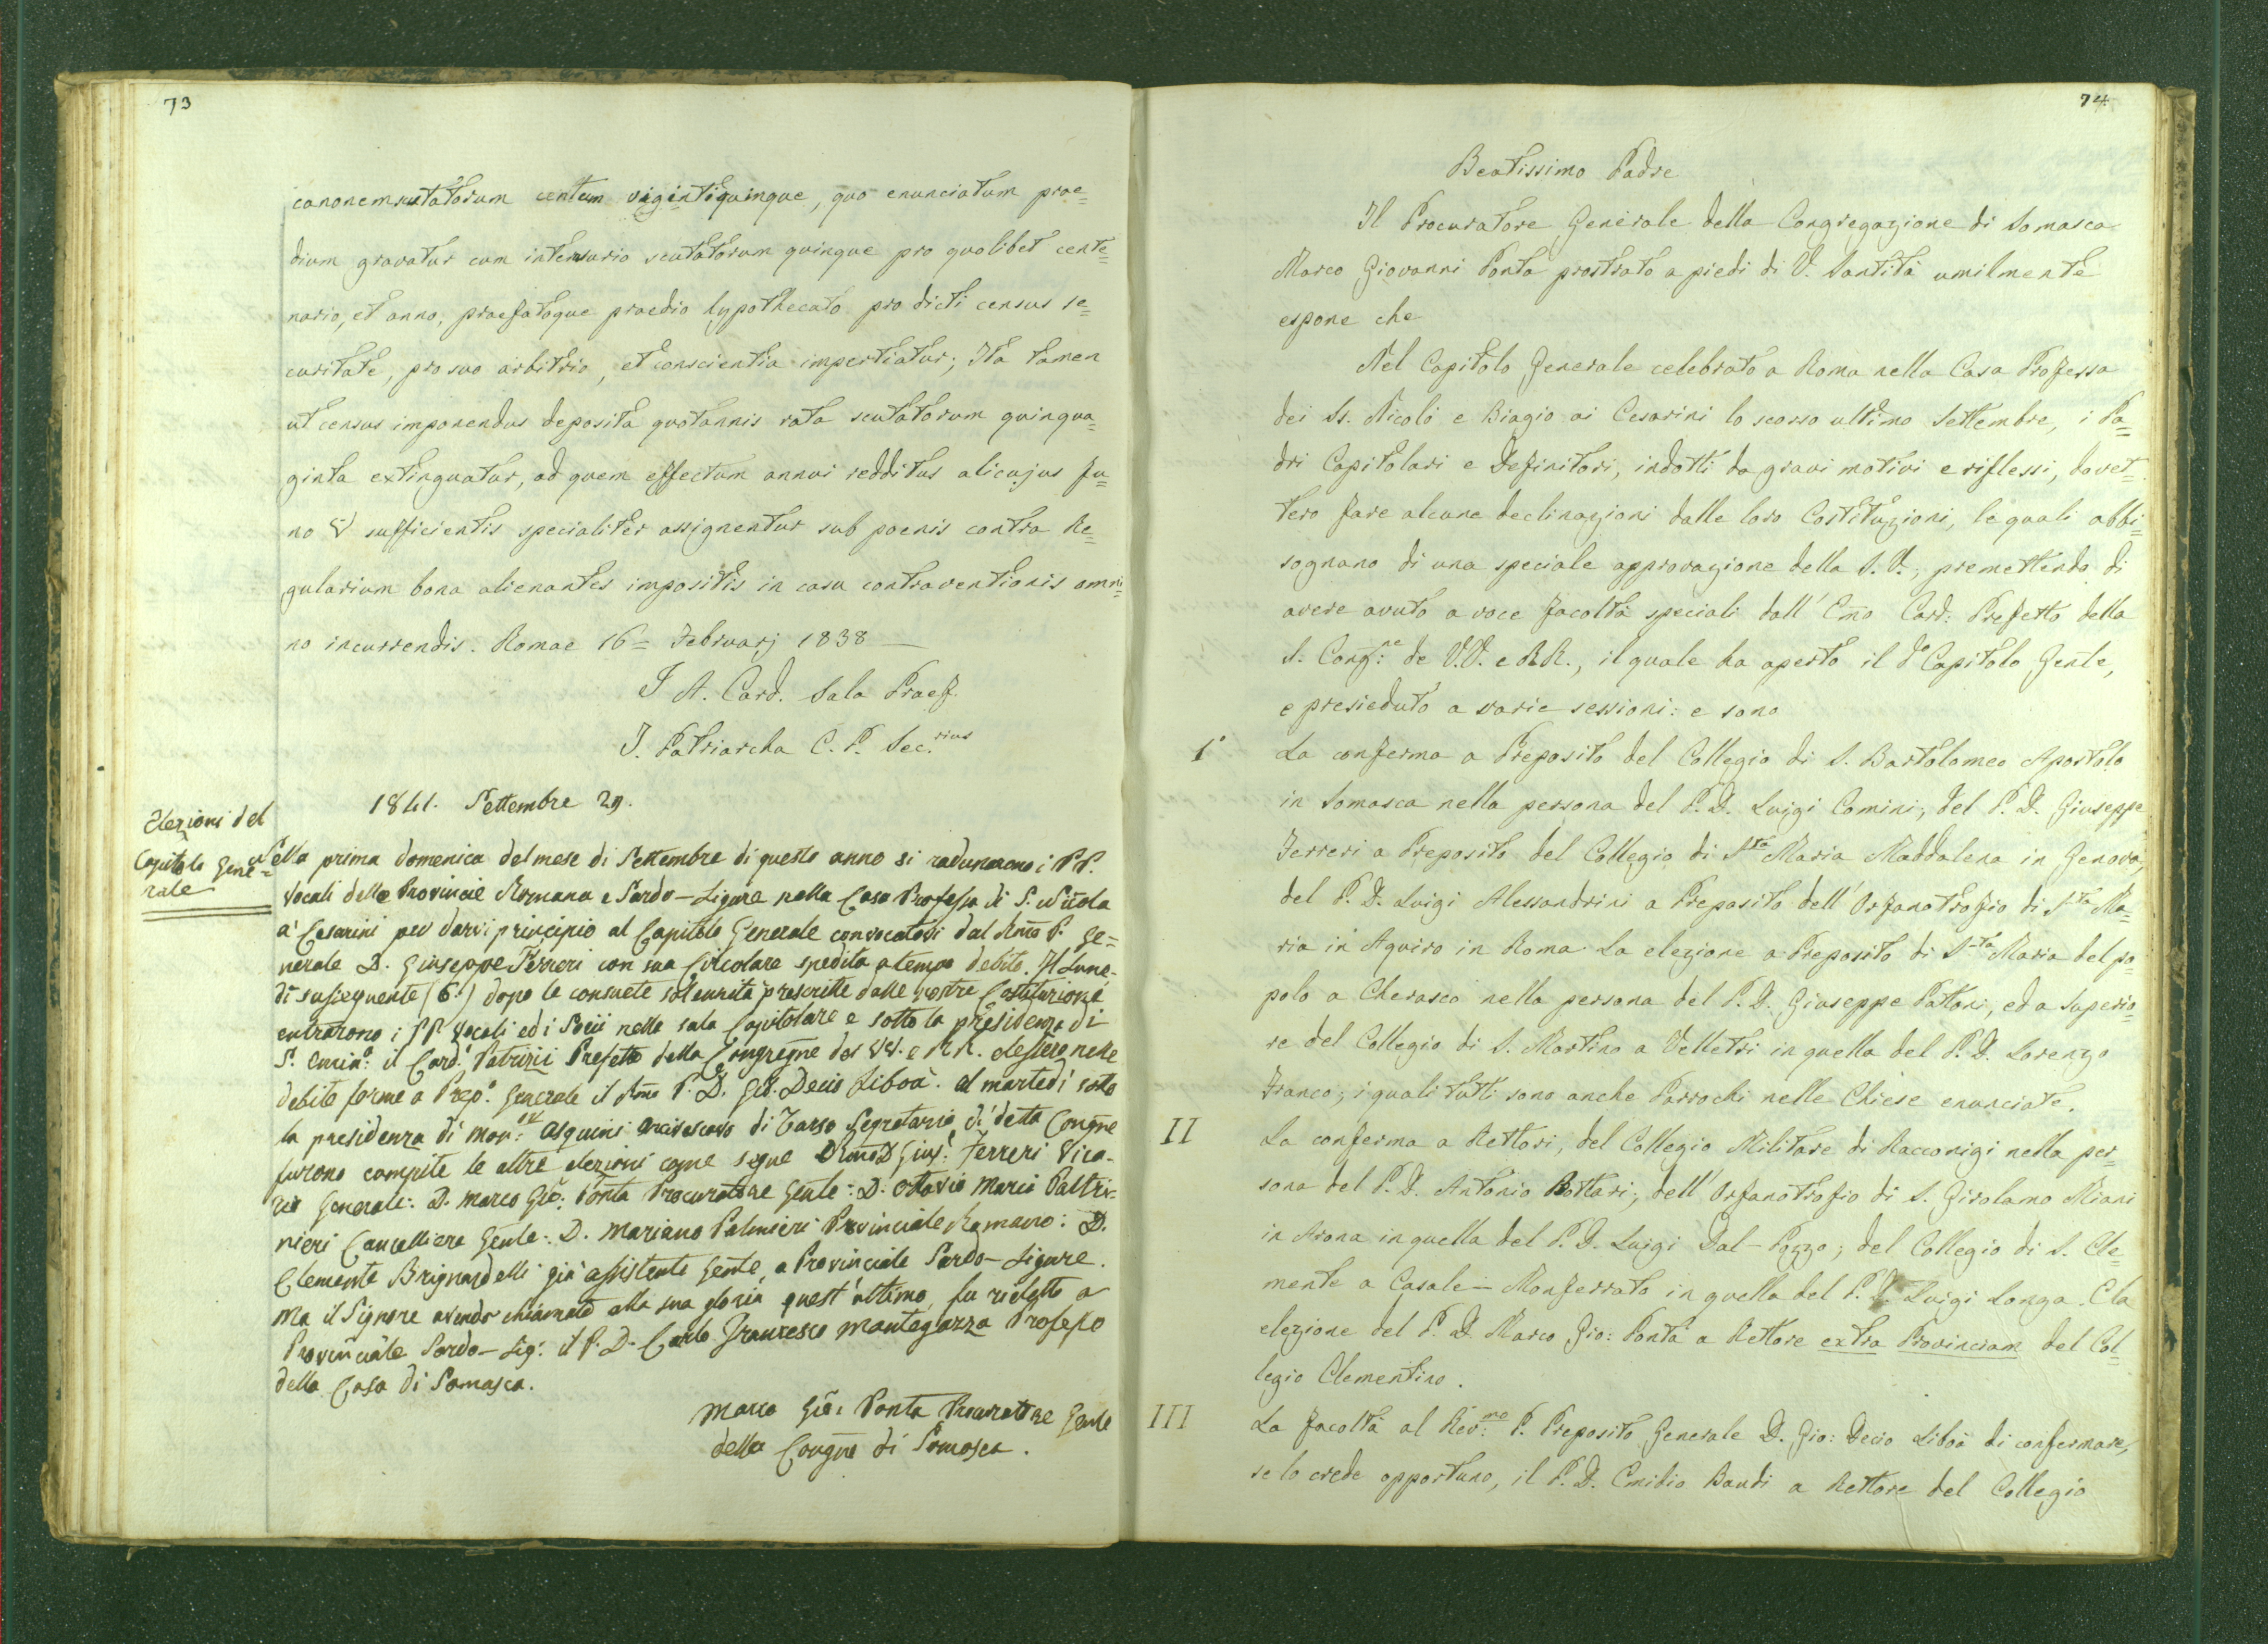 73
canonem scutatorum centum vigintiquinque, quo enunciatum prae=
dium gravatur cum intersurio scutatorum quinque pro quolibet cente=
nario, et anno, praefatoque praedio hypothecato pro dicti census se=
curitate, pro suo arbitrio, et conscientia impertiatur; Ita tamen
ut census imponendus deposita quotannis rata scutatorum quinqua=
ginta extinguatur, ad quem effectum annui redditus alicujus fu=
no sufficientis specialiter assignentur sub poenis contra Re=
gularium bona alienantes impositis in casu contraventionis omni=
no incurrendis. Romae 16= Februarj 1838 —
J A. Card. Sala Praef.
J. Patriarcha C. P. Sec.rius
1841. Settembre 29.
Elezioni del
Capitolo Gene=
rale
Nella prima domenica del mese di Settembre di questo anno si radunarono i PP.
Vocali delle Provincie Romana e Sardo-Ligure nella Casa Professa di S. Nicola
a' Cesarini per darvi principio al Capitolo Generale convocatovi dal Rmo P. Ge=
nerale D. Giuseppe Ferreri con sua Circolare spedita a tempo debito. Il Lune-
dì susseguente (6.) dopo le consuete solennità prescritte dalle nostre Costituzioni
entrarono i PP. Vocali ed i Socii nella sala Capitolare e sotto la presidenza di
S. Emin.a il Card.l Patrizii Prefetto della Congregne dei VV. e RR. elessero nelle
debite forme a Prep.o Generale il Rmo P. D. Gio. Decio Libois. Al martedì sotto
la presidenza di mon.r Asquini Arcivescovo di Tarso Segretario di detta Congne
furono compite le altre elezioni come segue Rmo D. Gius: Ferreri Vica-
rio Generale: D. Marco Gio: Ponta Procuratore Gente: D. Ottavio Maria Paltri-
nieri Cancelliere Gente: D. Mariano Palmieri Provinciale Romano: D.
Clemente Brignardelli già assistente Gente, a Provinciale Sardo-Ligure.
Ma il Signore avendo chiamato alla sua gloria quest'ultimo, fu rieletto a
Provinciale Sardo-Lig: il P. D. Carlo Francesco Mantegazza Professo
della Casa di Somasca.
Marco Gio: Ponta Procuratore Gente
della Congne di Somasca.
74
Beatissimo Padre
Il Procuratore Generale della Congregazione di Somasca
Marco Giovanni Ponta prostrato a piedi di V. Santità umilmente
espone che
Nel Capitolo Generale celebrato a Roma nella Casa Professa
dei Ss. Nicolò e Biagio ai Cesarini lo scorso ultimo Settembre, i Pa=
dri Capitolari e Definitori, indotti da gravi motivi e riflessi, dovet=
tero fare alcune declinazioni dalle loro Costituzioni, le quali abbi=
sognano di una speciale approvazione della S. V.; premettendo di
avere avuto a voce facoltà speciali dall' Emo Card: Prefetto della
S. Cong:ne de V.V. e RR., il quale ha aperto il do Capitolo Gente,
e presieduto a varie sessioni: e sono
1° La conferma a Preposito del Collegio di S. Bartolomeo Apostolo
in Somasca nella persona del P. D. Luigi Comini; del P. D. Giuseppe
Ferreri a Preposito del Collegio di Sta Maria Maddalena in Genova,
del P. D. Luigi Alessandrini a Preposito dell' Orfanotrofio di Sta Ma=
ria in Aquiro in Roma. La elezione a Preposito di Sta Maria del po=
polo a Cherasco nella persona del P. D. Giuseppe Pattoni, ed a Superio=
re del Collegio di S. Martino a Velletri in quella del P. D. Lorenzo
Franco; i quali tutti sono anche Parrochi nelle Chiese enunciate.
II La conferma a Rettori, del Collegio Militare di Racconigi nella per=
sona del P. D. Antonio Bottari; dell' Orfanotrofio di S. Girolamo Miani
in Arona in quella del P. D. Luigi Dal-Pozzo; del Collegio di S. Cle=
mente a Casale-Monferrato in quella del P. D. Luigi Longa. E la
elezione del P. D. Marco Gio: Ponta a Rettore extra Provinciam del Col=
legio Clementino.
III La facoltà al Rev:mo P. Preposito Generale D. Gio: Decio Libois di confermare,
se lo crede opportuno, il P. D. Emidio Baudi a Rettore del Collegio